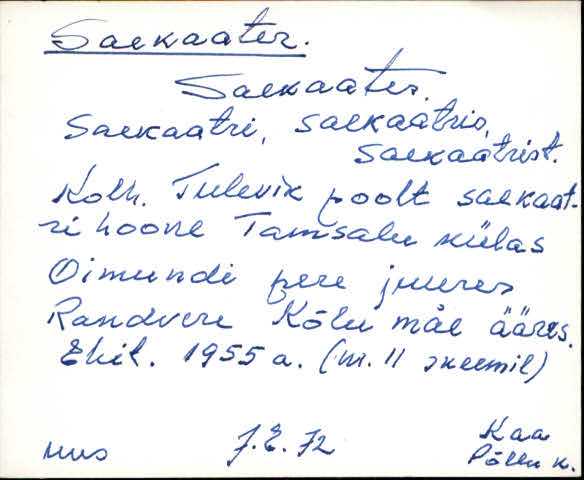 Saekaater.
Saekaater.
Saekaatri, saekaatris,
saekaatrist.
Kolh. Tulevik poolt saekaat-
ri hoone Tamsalu külas
Oimundi pere juures
Randvere Kõlu mäe ääres.
Ehit. 1955 a. (nr. 11 skeemil)
Mus J.E. 72 Kaa
Põllu k.